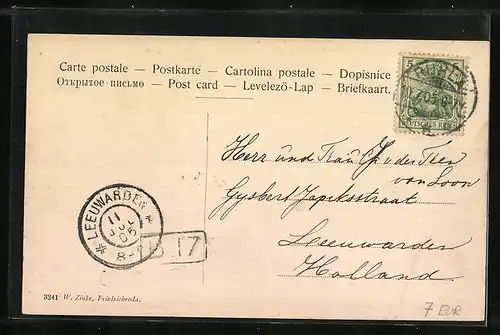 Carte postale — Postkarte — Cartolina postale — Dopisnice
Открытое-письмо — Post card — Levelező-Lap — Briefkaart.
5 5
DEUTSCHES REICH
Herr und Frau
van Loon
Gysbert Japiksstraat
Leeuwarden
Holland.
LEEUWARDEN
11
JUL
05
8-
B.17
3241 W. Zinke, Friedrichroda.
7 EUR